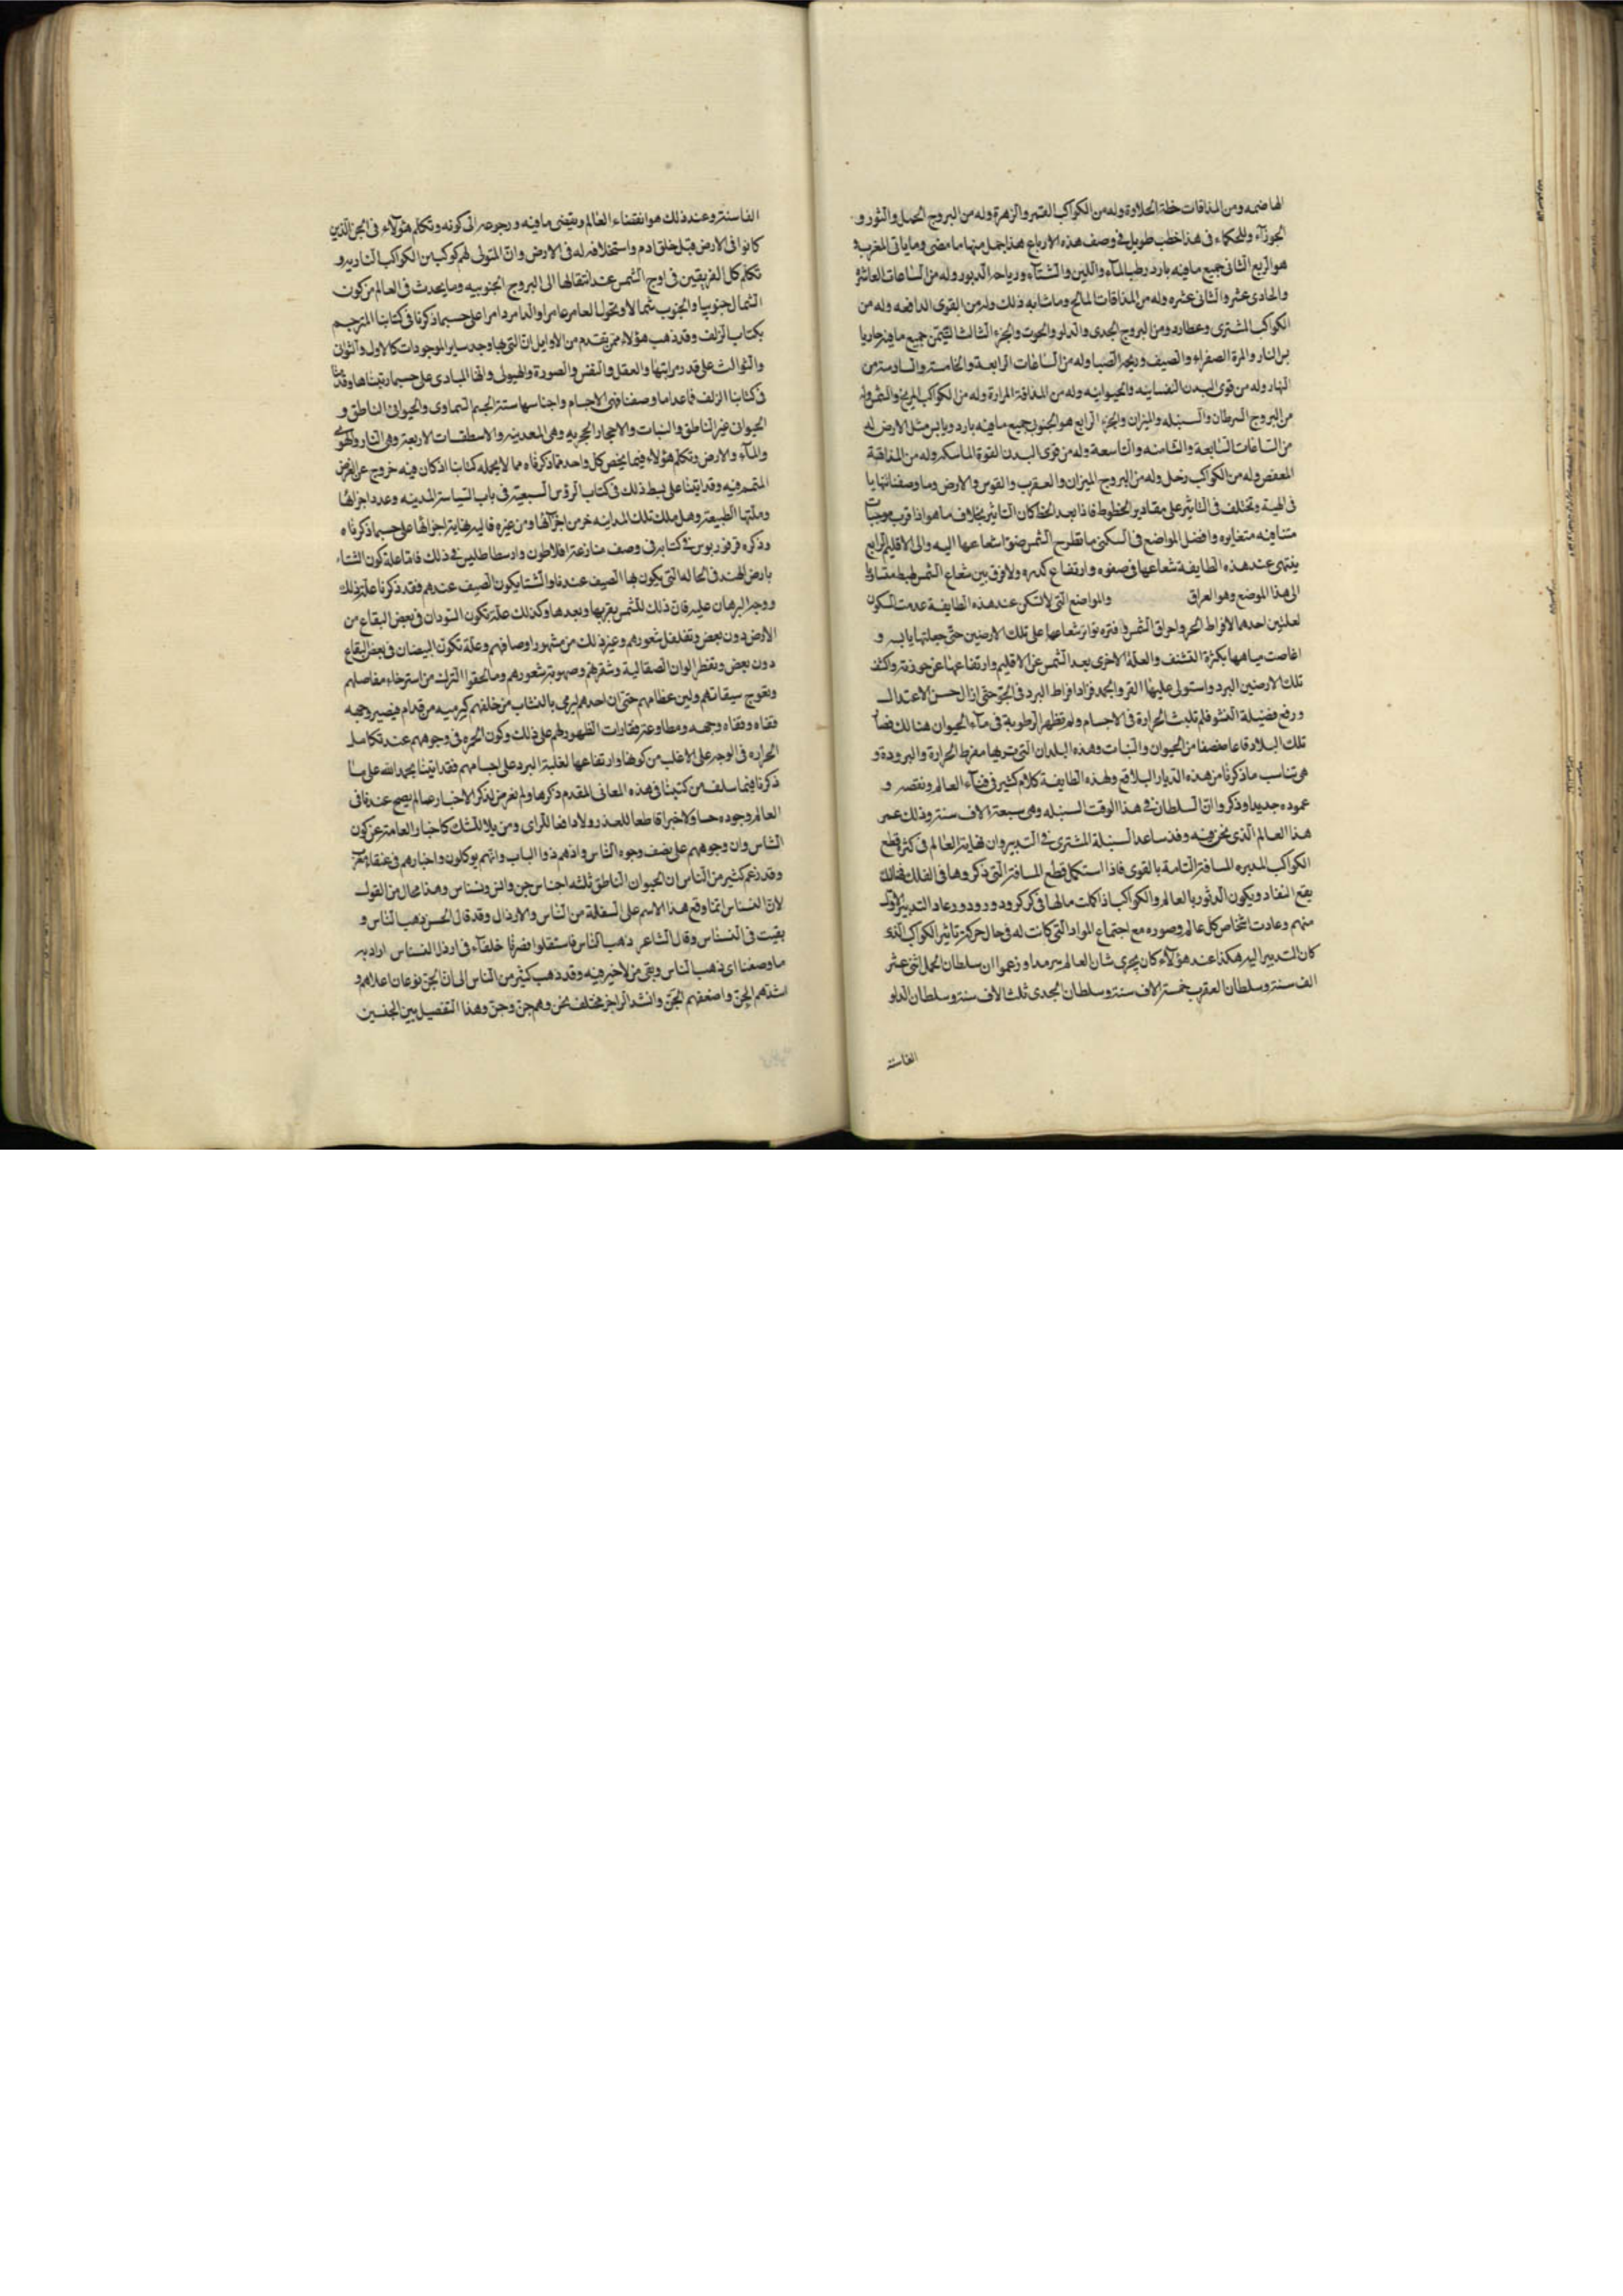 الهاضمه ومن المذاقات خلة الحلاوة وله من الكواكب القمر والزهرة وله من البروج الحمل والثور و
الجوزآء وللحكماء فى هذا خطب طويل فى وصف هذه الارباع هذا جمل منها ما مضى وما ياتى المغرب و
هو الربع الثانى جميع ما فيه بارد رطب الماء واللين والشتآء ورياحه الدبور وله من الساعات العاشرة
والحادى عشر والثانى عشره وله من المذاقات المالح وما شابه ذلك وله من القوى الدافعه وله من
الكواكب المشترى وعطارد ومن البروج الجدى والدلو والحوت والجزء الثالث التيمن جميع ما فيه حار يابس
النار والمرة الصفراء والصيف وريح الصبا وله من الساعات الرابعة والخامسة والسادسة من
النهار وله من قوى البدن النفسانيه والحيوانيه وله من المذاقة المرارة وله من الكواكب المريخ والشمس وله
من البروج السرطان والسنبله والميزان والجزء الرابع هو الجنوب جميع ما فيه بارد ويابس مثل الارض له
من الساعات السابعة والثامنه والتاسعة وله من قوى البدن القوة الماسكه وله من المذاقة
العفص وله من الكواكب زحل وله من البروج الميزان والعقرب والقوس والارض وما وصفنا
فى الهيئة وتختلف فى التاثير على مقادير الخطوط فاذا بعد الخط كان التاثير بخلاف ما هو اذا قرب موجبات
متنافيه متغايره وافضل المواضع فى السكنى ما تطرح الشمس ضوء اشعاعها اليه والى الاقليم الرابع
ينتهى عند هذه الطايفة شعاعها فى صفوه وارتفاع كدره ولا فرق بين شعاع الشمس
الى هذا الموضع وهو العراق والمواضع التى لا تسكن عند هذه الطايفة عدمت السكون
لعلتين احدهما لافراط الحر واحراق الشمس وتواتر شعاعها على تلك الارضين حتى جعلتها يابسه و
اغاصت مياهها بكثرة التنشف والعلة الاخرى بعد الشمس عن الاقليم وارتفاعها عن
تلك الارضين البرد واستولى عليها القر والجمد فزاد افراط البرد فى الجو حتى ازال حسن الاعتدال
ورفع فضيلة النشو فلم تلبث الحرارة فى الاجسام ولم تظهر الرطوبة فى ماء الحيوان هنالك فصار
تلك البلاد قاعا صفصفا من الحيوان والنبات وهذه البلدان التى مفرط الحرارة والبرودة و
هى تناسب ما ذكرنا من هذه الديار البلاقع ولهذه الطايفة كلام كثير فى فنآء العالم ونقصه و
عموده جديدا وذكروا ان السلطان فى هذا الوقت السنبله وهى سبعة الاف سنة وذلك عمر
هذا العالم الذى نحن فيه وقد ساعد السنبلة المشترى فى التدبير وان نهاية العالم فى كثرة قطع
الكواكب المدبره المسافة التامة بالقوى فاذا استكمل قطع المسافة التى ذكروها فى الفلك فهنالك
يقع النفاد ويكون الدثور بالعالم والكواكب اذا كملت مالها فى كر كرور ودور ودور عاد التدبير الاول
منهم وعادت اشخاص كل عالم وصوره مع اجتماع المواد التى كانت له فى حال حركة تاثير الكواكب الذى
كان التدبير اليه هكذا عند هؤلآء كان يجرى شان العالم سرمدا وزعموا ان سلطان الحمل اثنى عشر
الف سنة وسلطان العقرب خمسة الاف سنة وسلطان الجدى ثلثة الاف سنة وسلطان الدلو
الفاسنة
الفا سنة وعند ذلك هو انقضاء العالم ويقضى ما فيه ورجوعه الى كونه وتكلم هؤلآء فى الجن الذين
كانوا فى الارض قبل خلق ادم واستخلافه له فى الارض وان المتولى لهم كوكب من الكواكب الناريه و
تكلم كل الفريقين فى اوج الشمس عند انتقالها الى البروج الجنوبيه وما يحدث فى العالم من كون
الشمال جنوبيا والجنوب شمالا وتحول العامر غامرا والغامر عامرا على حسب ما ذكرنا فى كتابنا المترجم
بكتاب الزلف وقد ذهب هؤلاء ممن يقدم من الاوايل ان التى بها وجد ساير الموجودات كالاول والثوانى
والثوالث على قدر مراتبها والعقل والنفس والصورة والهيولى وانها المبادى على حسب ما رتبناها وقدمنا
فى كتابنا الزلف فما عدا ما وصفنا فهى الاجسام واجناسها ستة الجسم السماوى والحيوان الناطق و
الحيوان غير الناطق والنبات والاحجار الحجريه وهى المعدنيه والاسطقسات الاربعة وهى النار والهوى
والمآء والارض وتكلم هؤلاء فيما يخص كل واحد مما ذكرناه مما لا يحمله كتابنا اذ كان فيه خروج عن الغرض
المتمم فيه وقد اتينا على بسط ذلك فى كتاب الرؤس السبعية فى باب السياسة المدنيه وعدد اجزائها
وملتها الطبيعه وهل ملك تلك المدينه خر من اجزآئها ومن غيره فاليه نهاية اجزائها على حسب ما ذكرناه
وذكره فرفوريوس فى كتابه فى وصف منازعة افلاطون وارسطاطليس فى ذلك فاما علة كون الشتاء
بارض الهند فى الحاله التى يكون بها الصيف عندنا والشتا يكون الصيف عندهم فقد ذكرنا علة ذلك
ووجه البرهان عليه فان ذلك للشمس بقربها وبعدها وكذلك علة تكون السودان فى بعض البقاع من
الارض دون بعض وتفلفل شعورهم وغير ذلك من مشهور اوصافهم وعلة تكون البيضان فى بعض البقاع
دون بعض وتفطر الوان الصقالبة وشقرهم وصهوبة شعورهم وما لحقوا الترك من استرخاء مفاصلهم
وتعوج سيقانهم ولين عظامهم حتى ان احدهم ليرمى بالنشاب من خلفه كرميه من قدام فيصير وجهه
قفاه وقفاه وجهه ومطاوعة فقارات الظهور لهم على ذلك وكون الحره فى وجوههم عند تكامل
الحراره فى الوجه على الاغلب من كونها وارتفاعها لغلبة البرد على اجسامهم فقد اتينا بحمد الله على ما
ذكرنا فيما سلف من كتبنا فى هذه المعانى المقدم ذكرها ولم نعرض لذكر الاخبار عما لم يصح عندنا فى
العالم وجوده حسا ولا خبرا قاطعا للعذر ولا دافعا للراى ومزيلا للشك كاخبار العامة عن كون
الناس وان وجوههم على نصف وجوه الناس وانهم ذوا انياب وانهم يوكلون واخبارهم فى عنقاء مغرب
وقد زعم كثير من الناس ان الحيوان الناطق ثلثه اجناس جن والنس ونسناس وهذا محال من القول
لان النسناس انما وقع هذا الاسم على السفلة من الناس والارذال وقد قال الحسن ذهب الناس و
بقيت فى النسناس وقال الشاعر ذهب الناس فاستقلوا فصرنا خلفآء فى ارذل النسناس اراد به
ما وصفنا اى ذهب الناس وبقى من لا خير فيه وقد ذهب كثير من الناس الى ان الجن نوعان اعلاهم و
اشدهم الجن واضعفهم الحن وانشد الراجز مختلف نحن وهم جن وحن وهذا التفصيل بين الجنسين